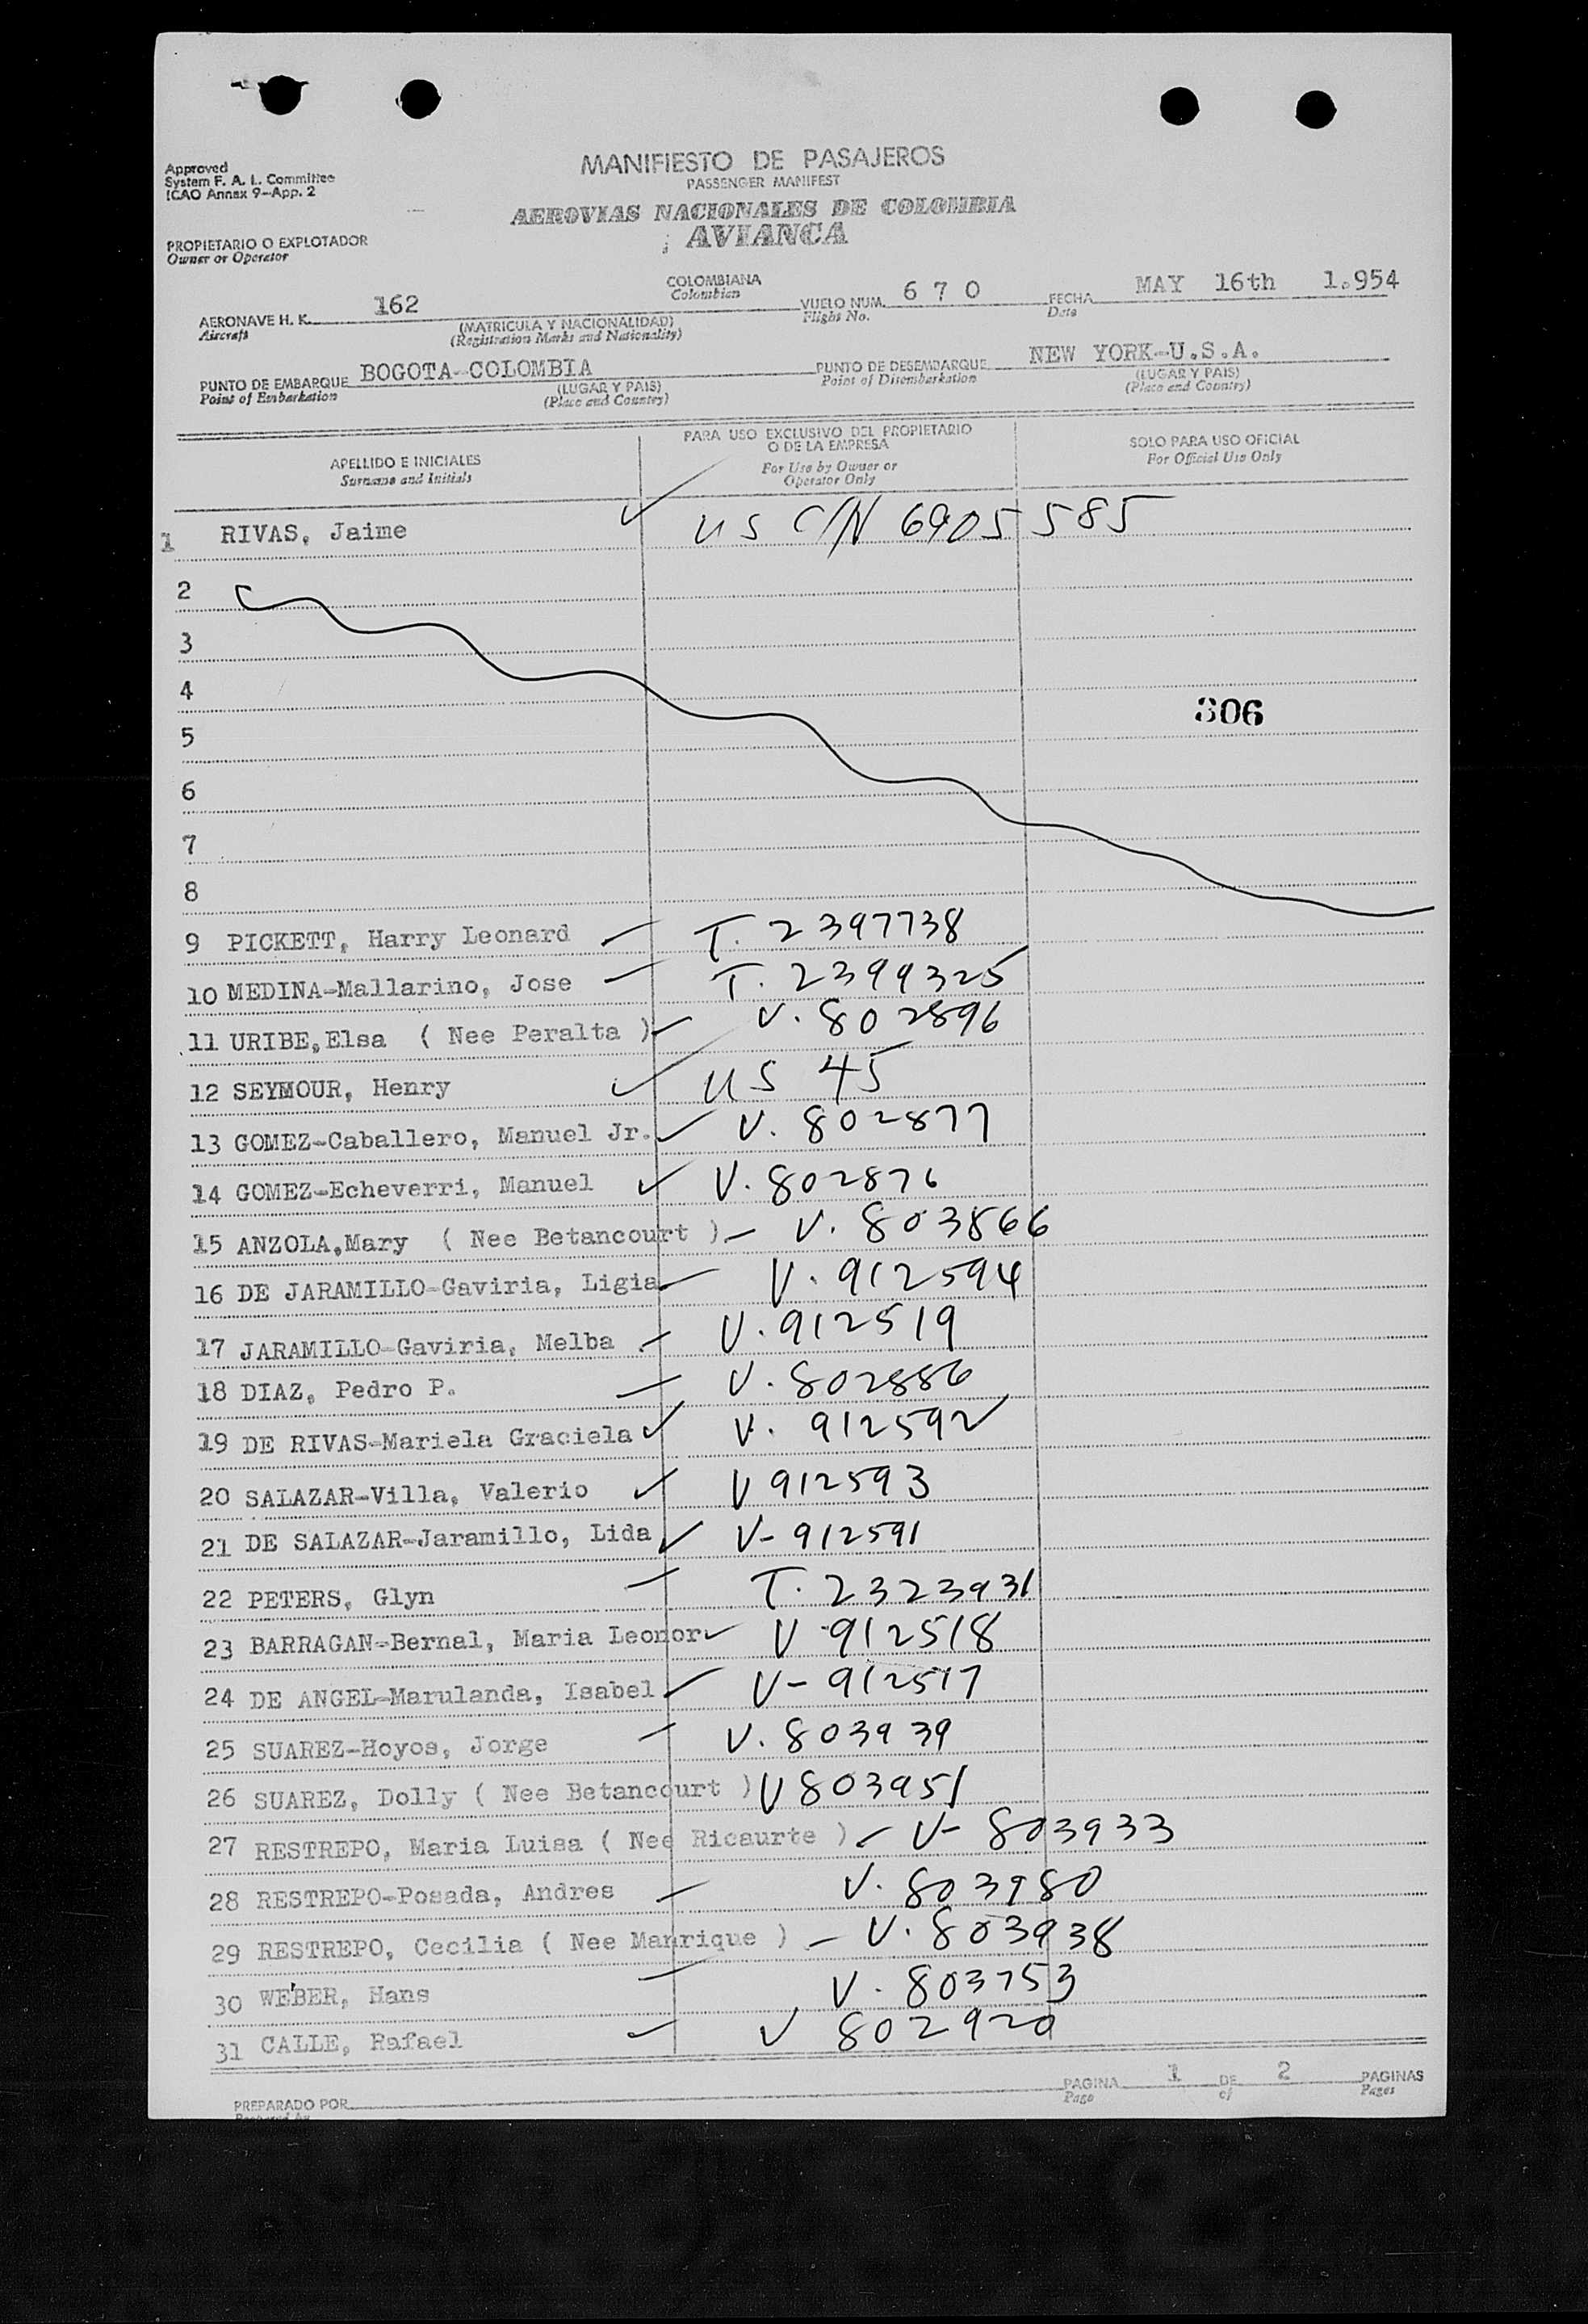 Approved
System F. A. L. Committee
ICAO Annex 9-App. 2
MANIFIESTO DE PASAJEROS
PASSENGER MANIFEST
AEROVIAS NACIONALES DE COLOMBIA
AVIANCA
PROPIETARIO O EXPLOTADOR
Owner or Operator
COLOMBIANA
Colombian
AERONAVE H. K. 162
Aircraft
(MATRICULA Y NACIONALIDAD)
(Registration Marks and Nationality)
VUELO NUM. 6 7 0
Flight No.
FECHA MAY 16th 1.954
Date
PUNTO DE EMBARQUE BOGOTA-COLOMBIA
Point of Embarkation
(LUGAR Y PAIS)
(Place and Country)
PUNTO DE DESEMBARQUE NEW YORK-U.S.A.
Point of Disembarkation
(LUGAR Y PAIS)
(Place and Country)
APELLIDO E INICIALES
Surname and Initials
PARA USO EXCLUSIVO DEL PROPIETARIO
O DE LA EMPRESA
For Use by Owner or
Operator Only
SOLO PARA USO OFICIAL
For Official Use Only
1 RIVAS, Jaime ✓ US C/N 6905585
2
3
4
306
5
6
7
8
9 PICKETT, Harry Leonard T. 2397738
10 MEDINA-Mallarino, Jose T. 2399325
11 URIBE,Elsa ( Nee Peralta ) V. 802896
12 SEYMOUR, Henry ✓ US 45
13 GOMEZ-Caballero, Manuel Jr. ✓ V. 802877
14 GOMEZ-Echeverri, Manuel ✓ V. 802876
15 ANZOLA,Mary ( Nee Betancourt ) V. 803866
16 DE JARAMILLO-Gaviria, Ligia V. 912594
17 JARAMILLO-Gaviria, Melba V. 912519
18 DIAZ, Pedro P. V. 802886
19 DE RIVAS-Mariela Graciela ✓ V. 912592
20 SALAZAR-Villa, Valerio ✓ V 912593
21 DE SALAZAR-Jaramillo, Lida ✓ V- 912591
22 PETERS, Glyn T. 2323931
23 BARRAGAN-Bernal, Maria Leonor ✓ V-912518
24 DE ANGEL-Marulanda, Isabel ✓ V- 912517
25 SUAREZ-Hoyos, Jorge V. 803939
26 SUAREZ, Dolly ( Nee Betancourt ) V 803951
27 RESTREPO, Maria Luisa ( Nee Ricaurte ) V- 803933
28 RESTREPO-Posada, Andres V. 803980
29 RESTREPO, Cecilia ( Nee Manrique ) V. 803938
30 WEBER, Hans V. 803753
31 CALLE, Rafael V 802920
PREPARADO POR
PAGINA 1 DE 2 PAGINAS
Page of Pages